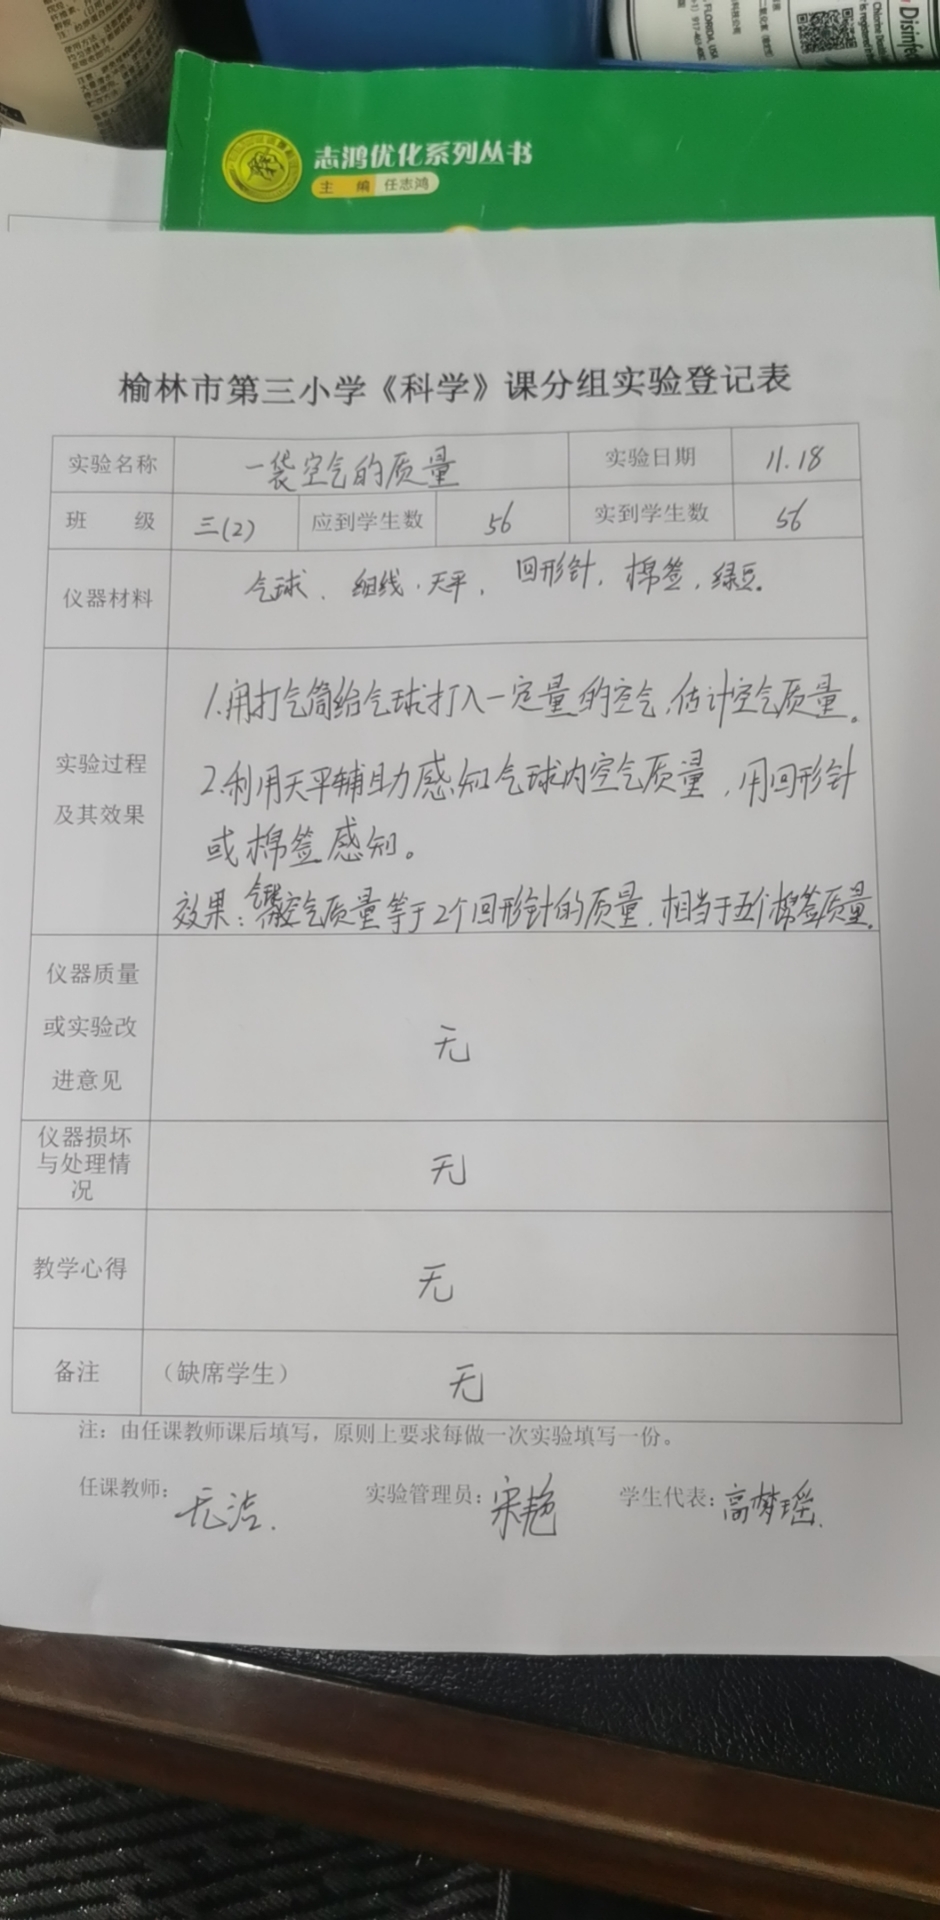 志鸿优化系列丛书
主 编 任志鸿
FLORIDA, USA
Disinfe
榆林市第三小学《科学》课分组实验登记表
实验名称 一袋空气的质量 实验日期 11.18
班 级 三(2) 应到学生数 56 实到学生数 56
仪器材料 气球、细线、天平、回形针、棉签、绿豆。
1.用打气筒给气球打入一定量的空气,估计空气质量。
实验过程
及其效果
2.利用天平辅助力感知气球内空气质量,用回形针
或棉签感知。
效果:空气质量等于2个回形针的质量,相当于五个棉签质量。
仪器质量
或实验改
进意见
无
仪器损坏
与处理情
况
无
教学心得 无
备注 (缺席学生) 无
注:由任课教师课后填写,原则上要求每做一次实验填写一份。
任课教师: 实验管理员:宋艳 学生代表:高梦瑶.